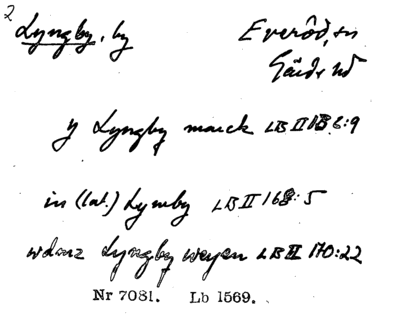 2
Lyngby, by Everöd, sn
Gärds hd
y Lyngby marck LB II 168:9
in (lat.) Lymby LB II 168:5
Lyngby weyen LB II 170:22
Nr 7081. Lb 1569.